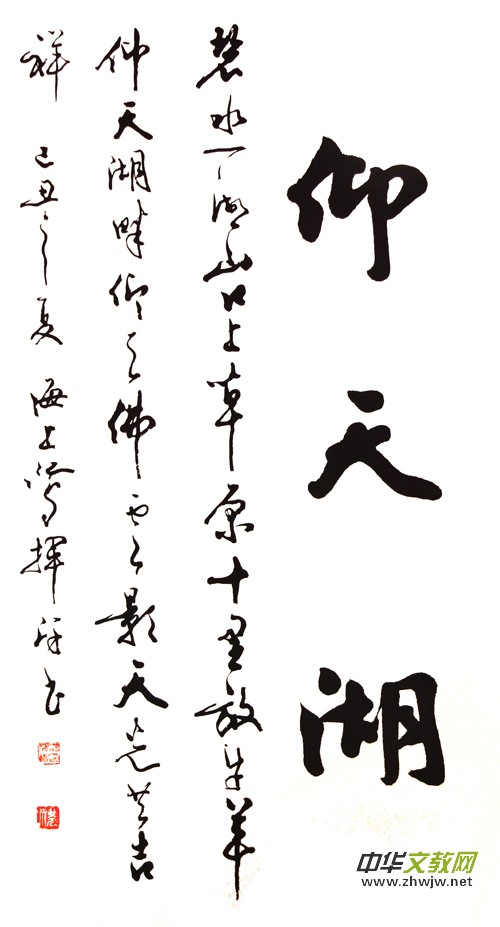 仰天湖
碧水一湖山口上草原十里放牛羊
仰天湖畔仰天佛雲影天光共吉
祥 己丑之夏 海上揮汗书
中华文教网
www.zhwjw.net